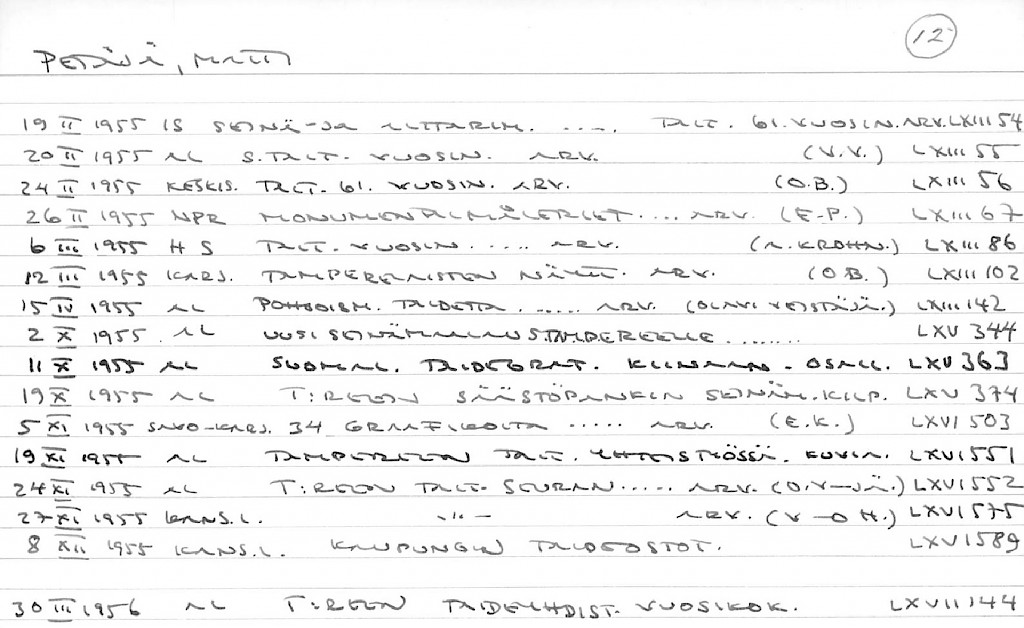 12
PETÄJÄ, MATTI
19 II 1955 IS SEINÄ- JA ALTTARIM. ..... TAIT. 61. VUOSIN. ARV. LXIII 54
20 II 1955 AL S. TAIT. VUOSIN. ARV. (V.V.) LXIII 55
24 II 1955 KESKIS. TAIT. 61. VUOSIN. ARV. (O.B.) LXIII 56
26 II 1955 NPR MONUMENTALMÅLERIET .... ARV. (E-P.) LXIII 67
6 III 1955 H S TAIT. VUOSIN ..... ARV. (A. KROHN.) LXIII 86
12 III 1955 KARJ. TAMPERELAISTEN NÄYTT. ARV. (O.B.) LXIII 102
15 IV 1955 AL POHJOISM. TAIDETTA ...... ARV. (OLAVI VEISTÄJÄ.) LXIII 142
2 X 1955 AL UUSI SEINÄMAALAUS TAMPEREELLE ....... LXV 344
11 X 1955 AL SUOMAL. TAIDEGRAF. KIINAAN - OSALL. LXV 363
19 X 1955 AL T:REEN SÄÄSTÖPANKIN SEINÄM. KILP. LXV 374
5 XI 1955 SAVO-KARJ. 34 GRAAFIKOLTA ..... ARV. (E.K.) LXVI 503
19 XI 1955 AL TAMPEREEN TAIT. YHTEISTYÖSSÄ. KUVIA. LXVI 551
24 XI 1955 AL T:REEN TAIT. SEURAN ..... ARV. (O.V-JÄ.) LXVI 552
27 XI 1955 KANS.L. -"- ARV. (V-O H.) LXVI 575
8 XII 1955 KANS.L. KAUPUNGIN TAIDEOSTOT. LXVI 589
30 III 1956 AL T:REEN TAIDEYHDIST. VUOSIKOK. LXVII 144